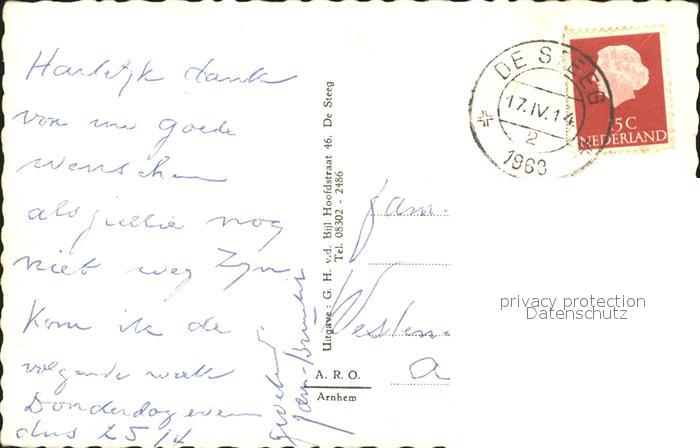 Hartelijk dank
voor uw goede
wenschen
als jullie nog
niet weg zyn
kom ik de
volgende week
Donderdag even
dus 25/4
groeten
fam.
Westen
a
Uitgave: G. H. v.d. Bijl Hoofdstraat 46, De Steeg
Tel. 08302 - 2486
A. R. O.
Arnhem
DE STEEG
17.IV.14
2
1963
5 C
NEDERLAND
privacy protection
Datenschutz